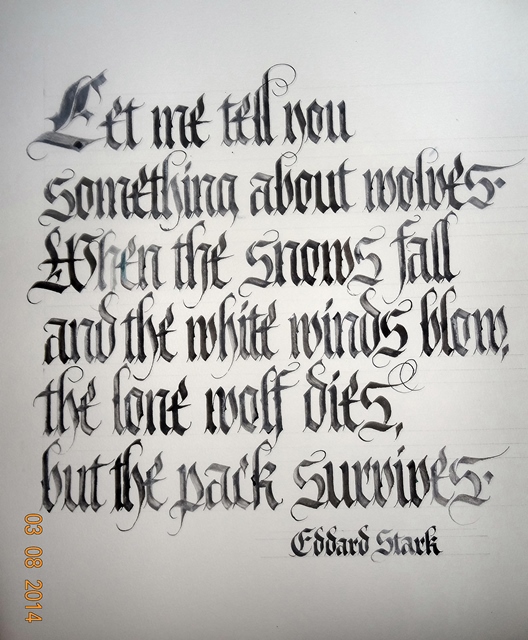 Let me tell you
something about wolves.
When the snows fall
and the white winds blow,
the lone wolf dies,
but the pack survives.
Eddard Stark
03 08 2014